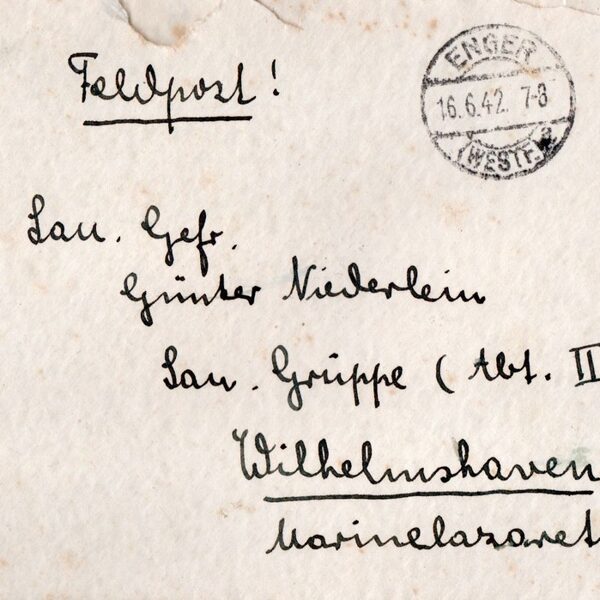 Feldpost!
ENGER
16.6.42. 7-8
(WESTF.)
San. Gefr.
Günter Niederlein
San. Grüppe (Abt. II
Wilhelmshaven
Marinelazaret